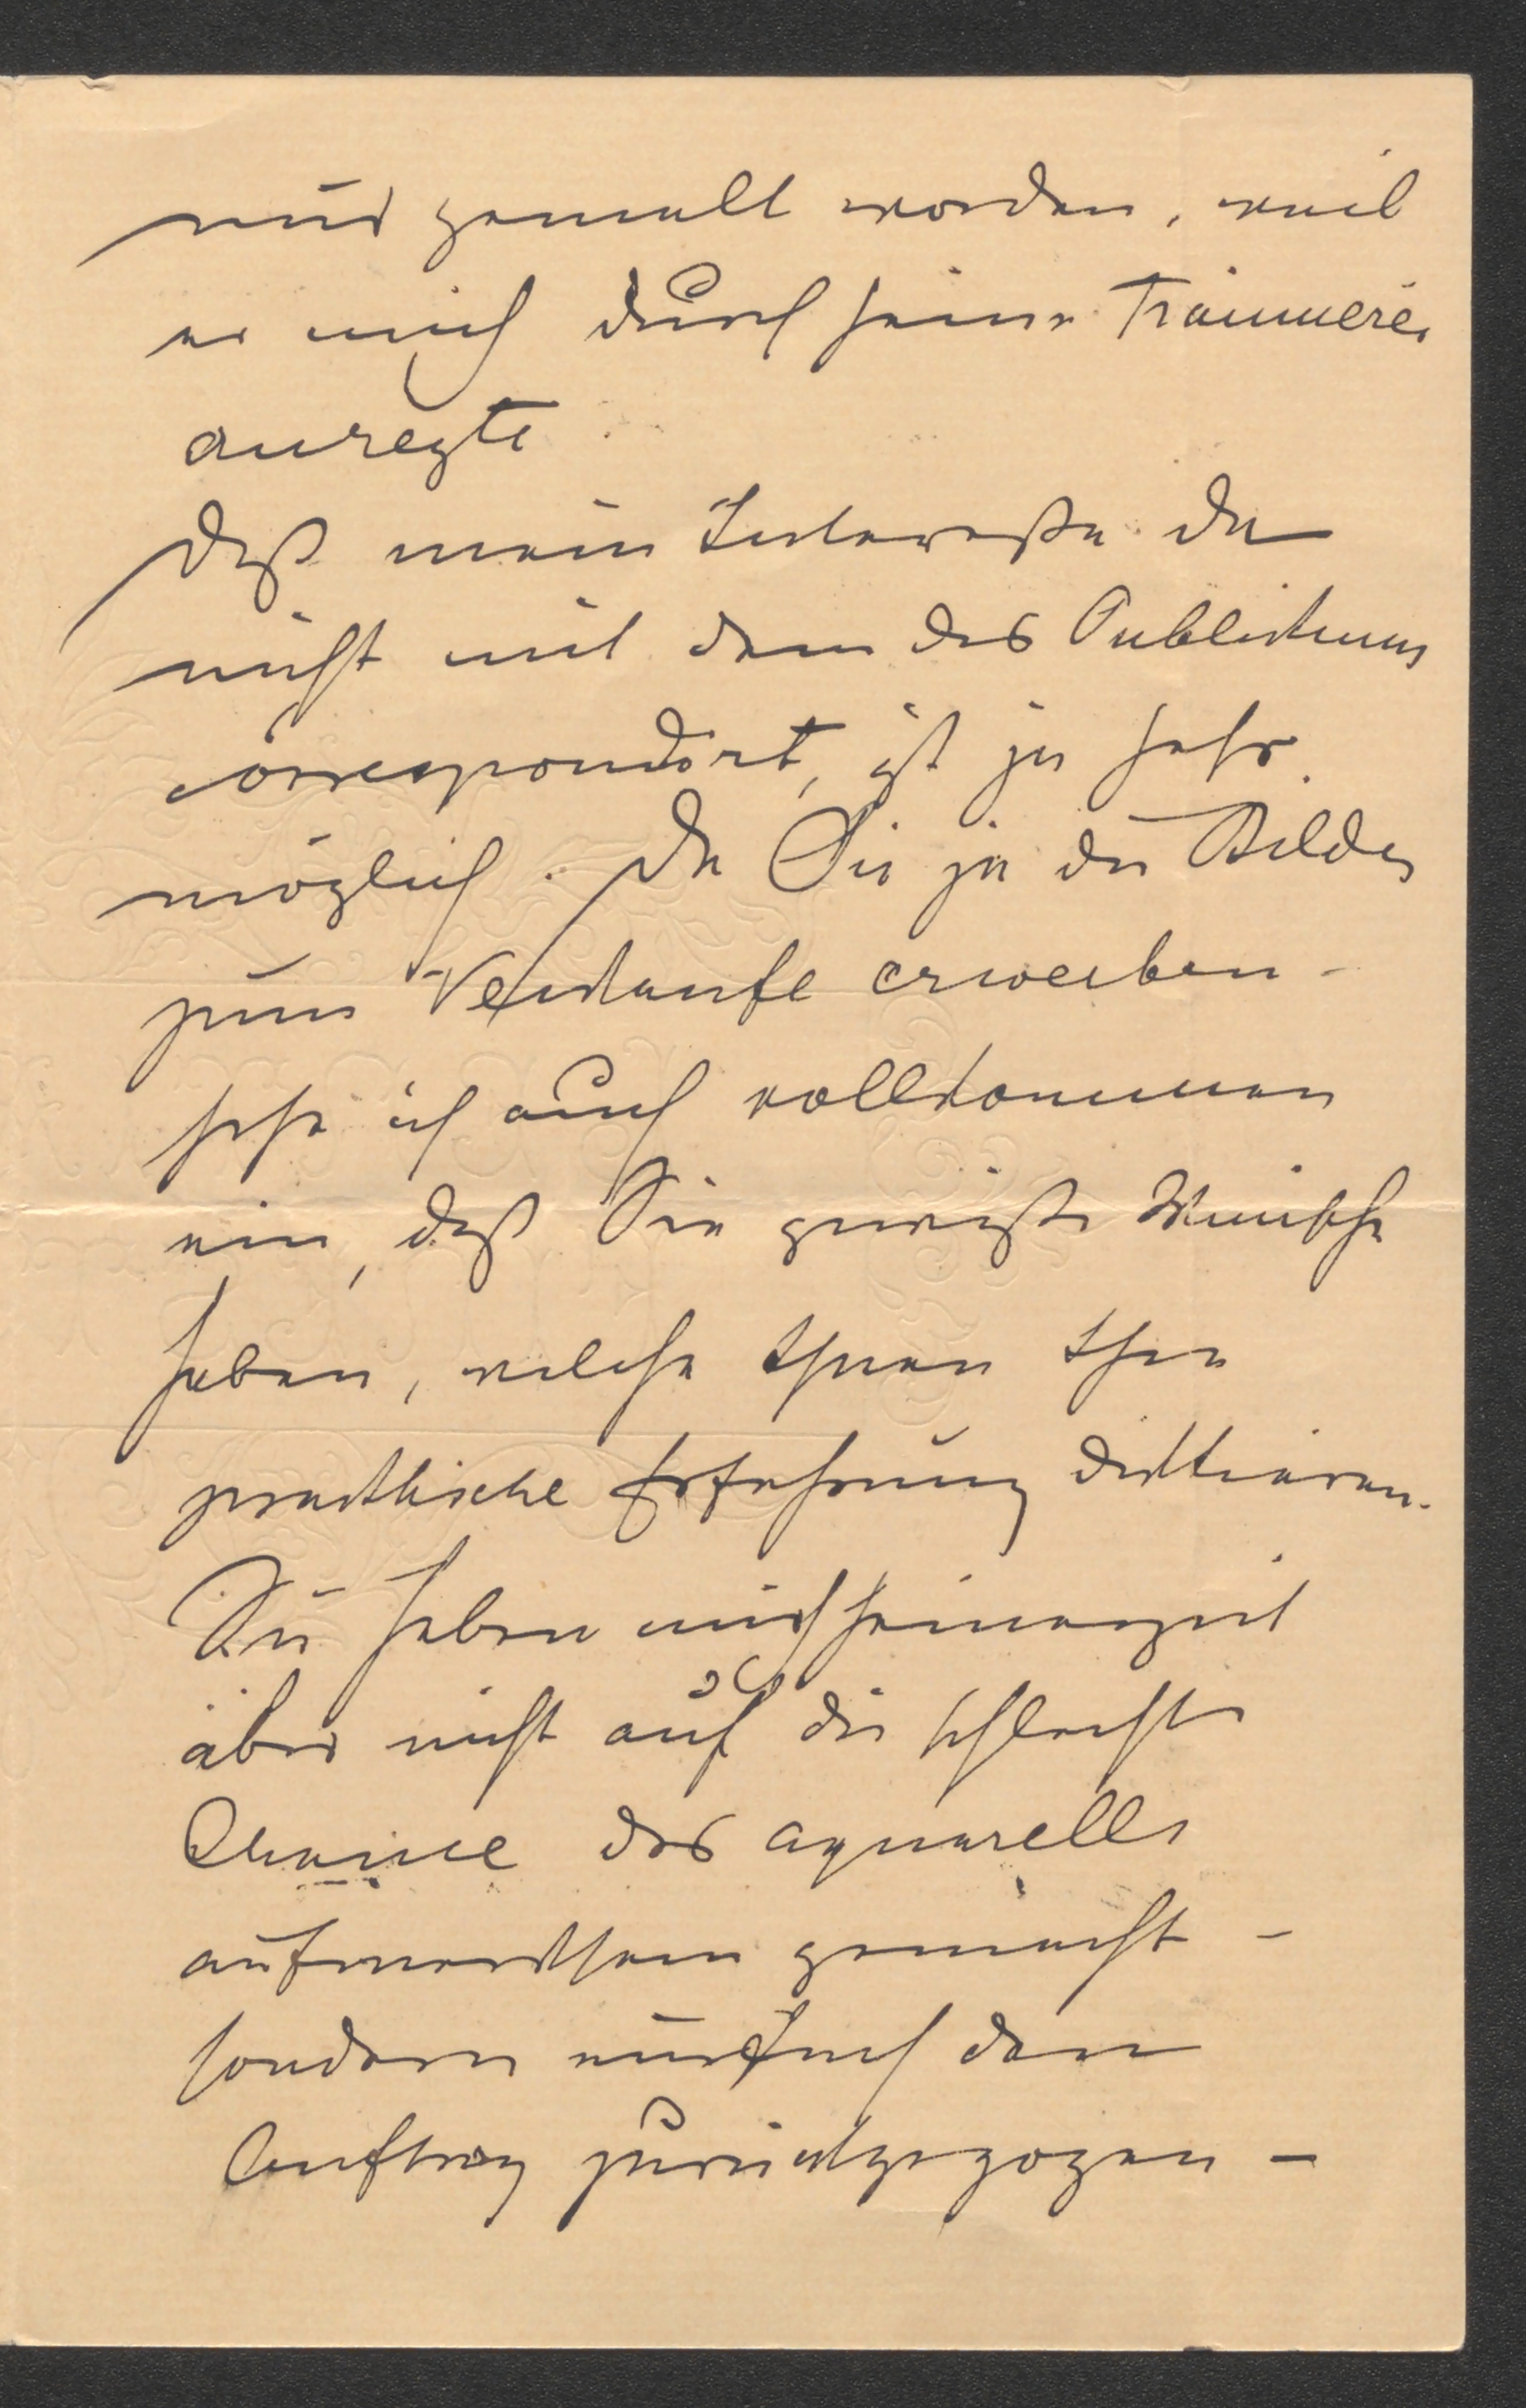 nur gemalt worden, weil
er mich durch seine Träumerei
anregte.
Daß mein Interesse da
nicht mit dem des Publikums
correspondirt, ist ja sehr
möglich. Da Sie ja die Bilder
zum Verkaufe erwerben –
sehe ich auch vollkommen
ein, daß Sie gewisse Wünsche
haben, welche Ihnen Ihre
praktische Erfahrung diktieren.
Sie haben mich seinerzeit
aber nicht auf die schlechte
Chance des Aquarells
aufmerksam gemacht –
sondern einfach den
Auftrag zurückgezogen –